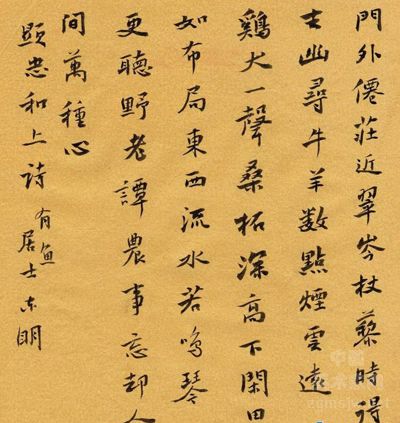 門外僊莊近翠岑杖藜時得
去幽尋牛羊数點煙雲遠
鷄犬一聲桑柘深高下閑田
如布局東西流水若鳴琴
更聽野老譚農事忘却人
間萬種心
顯忠和上詩 有魚居士东明